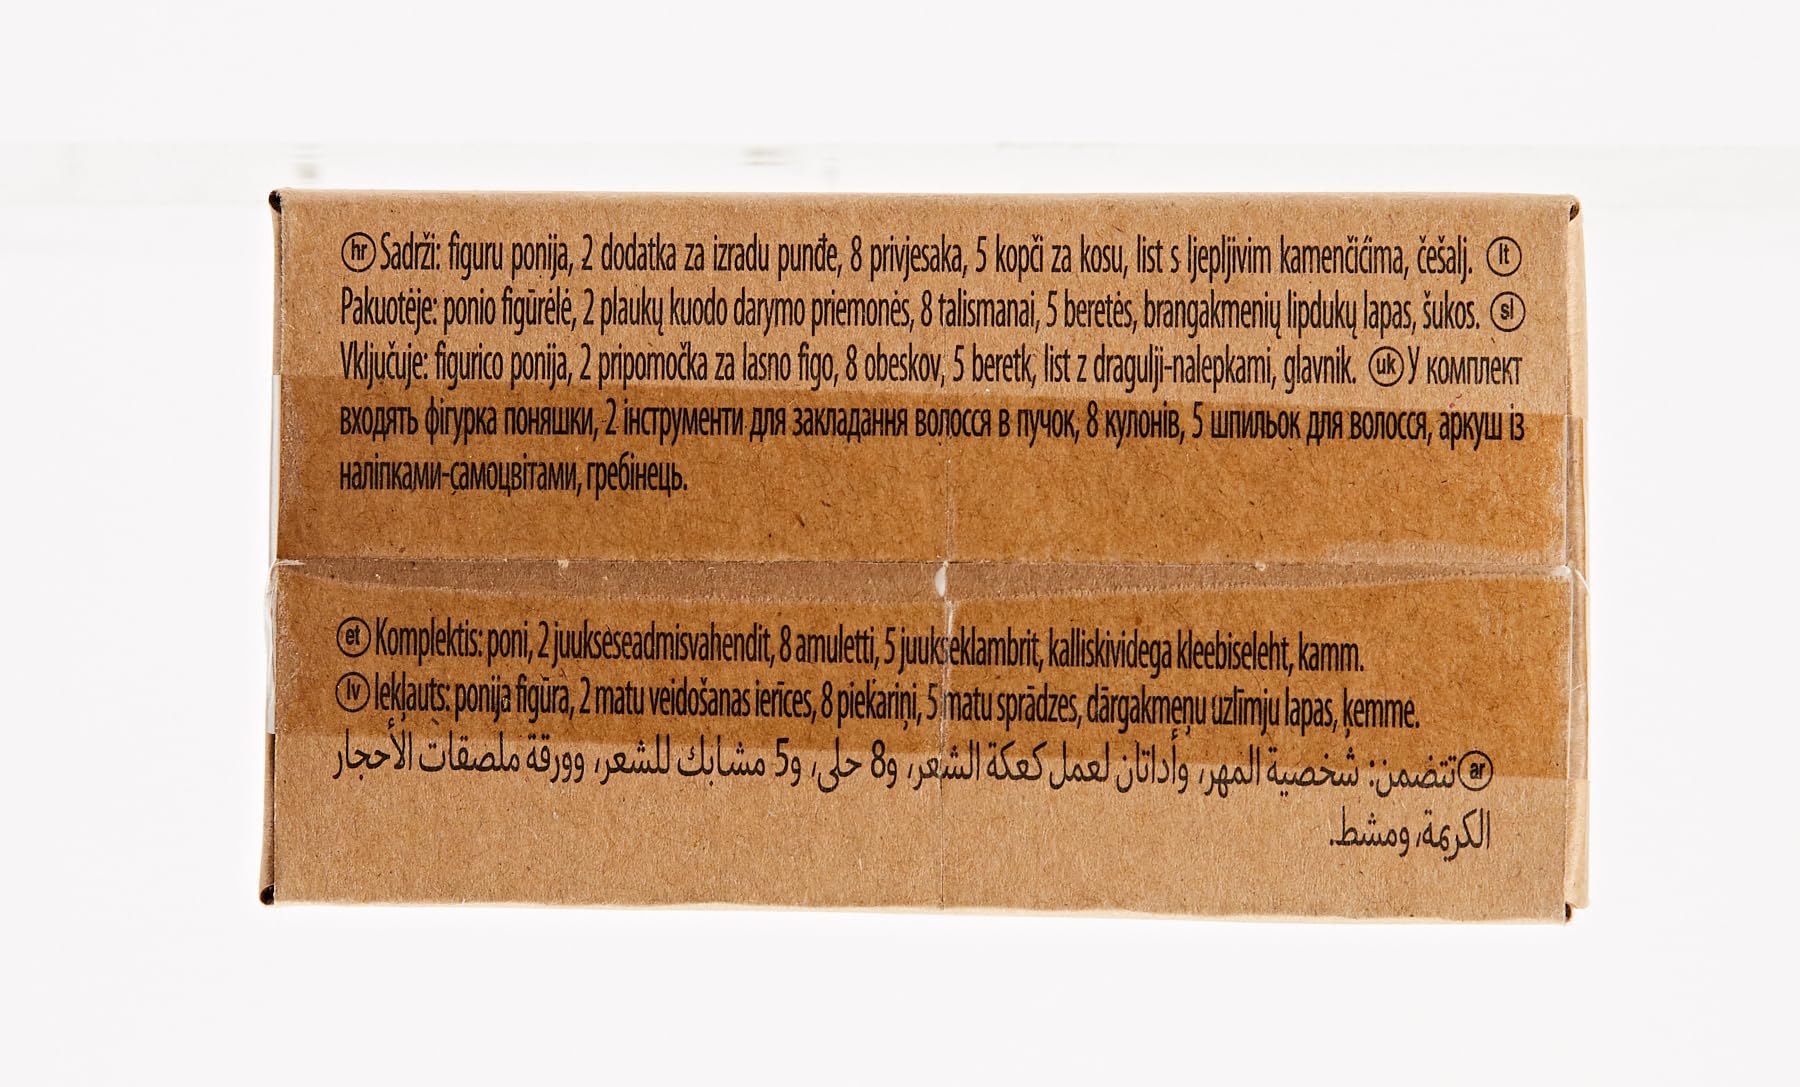 hr Sadrži: figuru ponija, 2 dodatka za izradu punđe, 8 privjesaka, 5 kopči za kosu, list s ljepljivim kamenčićima, češalj. lt
Pakuotėje: ponio figūrėlė, 2 plaukų kuodo darymo priemonės, 8 talismanai, 5 beretės, brangakmenių lipdukų lapas, šukos. sl
Vključuje: figurico ponija, 2 pripomočka za lasno figo, 8 obeskov, 5 beretk, list z dragulji-nalepkami, glavnik. uk У комплект
входять фігурка поняшки, 2 інструменти для закладання волосся в пучок, 8 кулонів, 5 шпильок для волосся, аркуш із
наліпками-самоцвітами, гребінець.
et Komplektis: poni, 2 juukseseadmisvahendit, 8 amuletti, 5 juukseklambrit, kalliskividega kleebiseleht, kamm.
lv Iekļauts: ponija figūra, 2 matu veidošanas ierīces, 8 piekariņi, 5 matu sprādzes, dārgakmeņu uzlīmju lapas, ķemme.
ar تتضمن: شخصية المهر، وأداتان لعمل كعكة الشعر، و8 حلى، و5 مشابك للشعر، وورقة ملصقات الأحجار
الكريمة، ومشط.